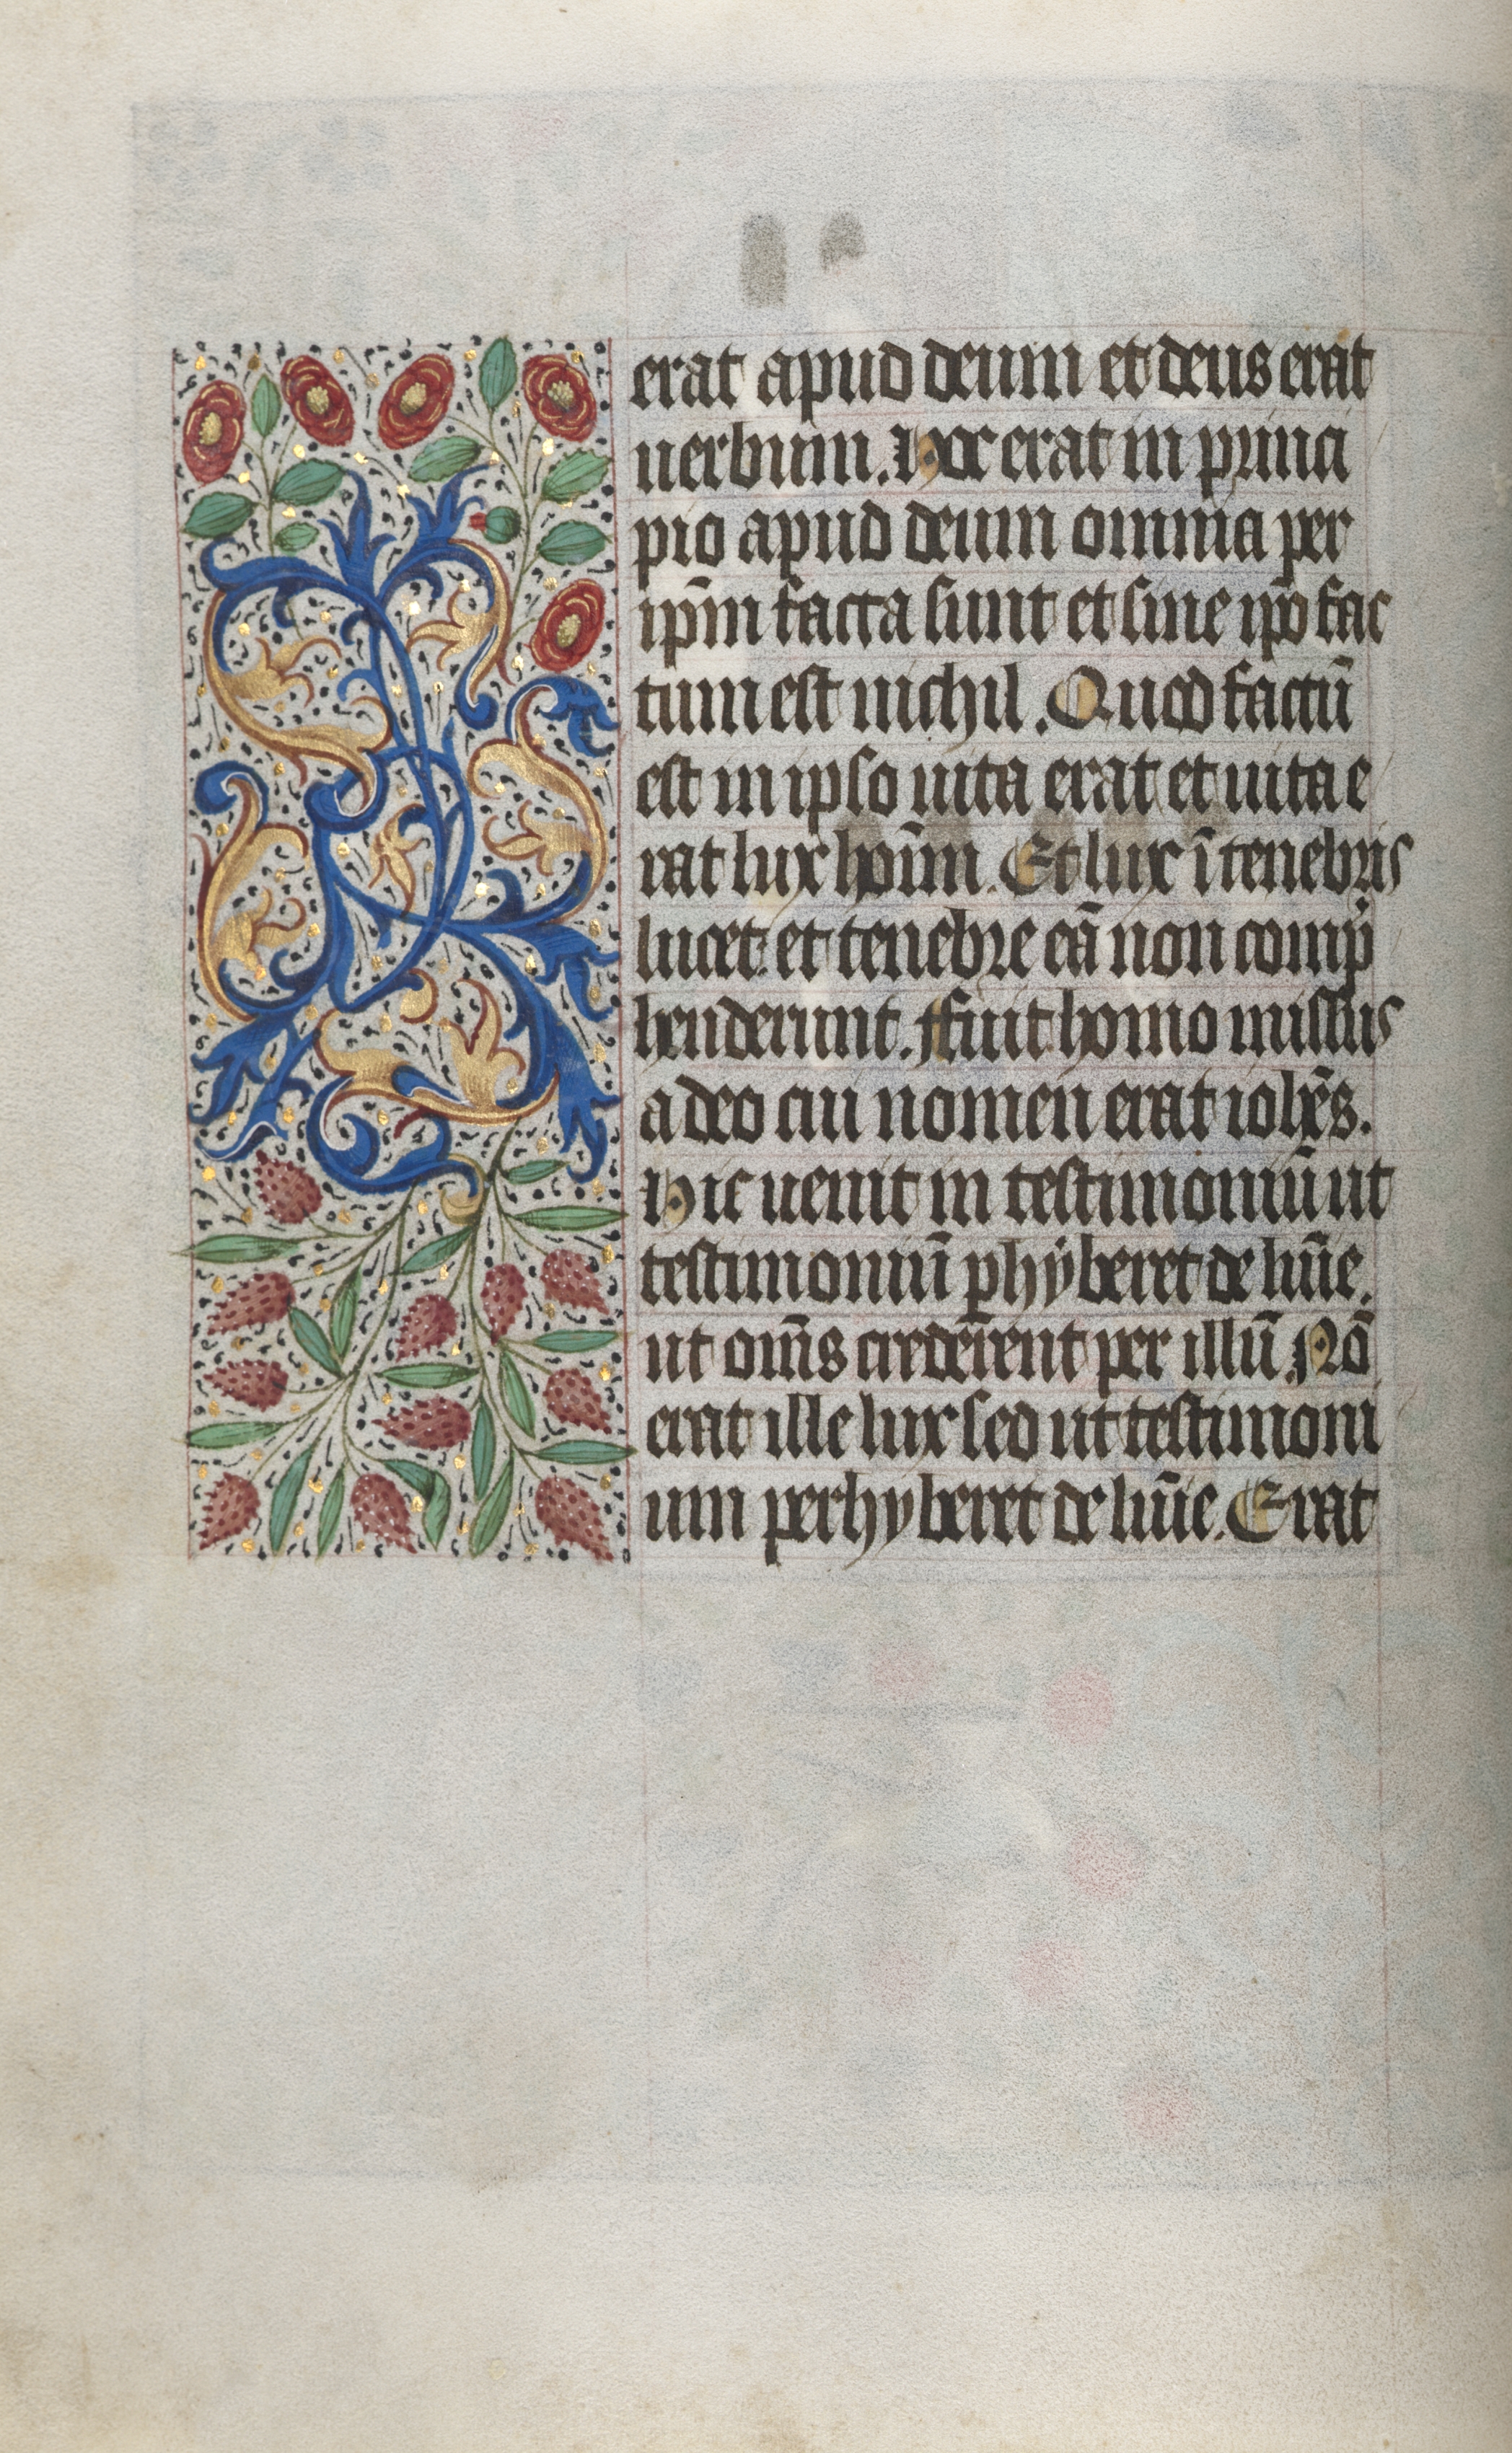 erat apud deum et deus erat
uerbum. Hoc erat in princi
pio apud deum omnia per
ip̄m facta sunt et sine ip̄o fac
tum est nichil. Quod factū
est in ipso uita erat et uita e
rat lux hoīm. Et lux ī tenebris
lucet et tenebre eā non comp̄
henderunt. Ffuit homo missus
a deo cui nomen erat ioh̄es.
Hic uenit in testimoniū ut
testimoniū phÿberet de lūīe.
ut om̄s crederent per illū. Nō
erat ille lux sed ut testimoni
um perhyberet de lūīe. Erat